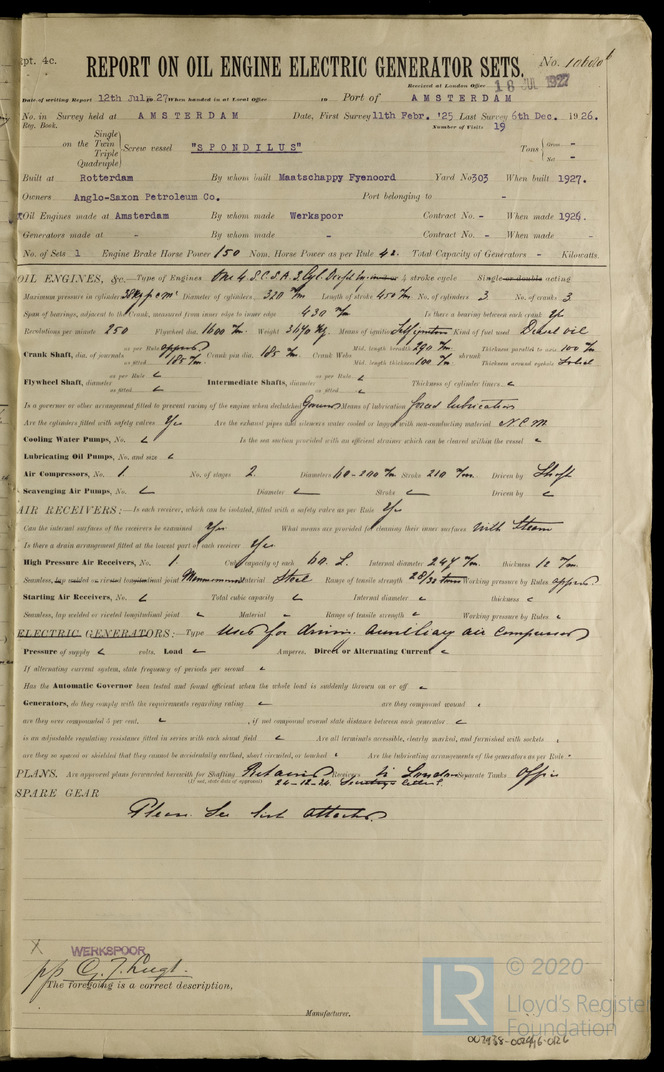 Rpt. 4c.
REPORT ON OIL ENGINE ELECTRIC GENERATOR SETS. No.
Received at London Office 18 JUL 1927
Date of writing Report 12th July 1927 When handed in at Local Office 19 Port of AMSTERDAM
No. in Survey held at AMSTERDAM Date, First Survey 11th Febr. '25 Last Survey 6th Dec. 1926.
Reg. Book. Number of Visits 19
Single
on the Twin
Triple
Quadruple
Screw vessel "SPONDILUS" Tons Gross -
Net -
Built at Rotterdam By whom built Maatschappy Fyenoord Yard No 303 When built 1927.
Owners Anglo-Saxon Petroleum Co. Port belonging to -
Oil Engines made at Amsterdam By whom made Werkspoor Contract No. - When made 1926.
Generators made at - By whom made - Contract No. - When made -
No. of Sets 1 Engine Brake Horse Power 150 Nom. Horse Power as per Rule 42 Total Capacity of Generators - Kilowatts.
OIL ENGINES, &c.— Type of Engines One 4 S.C.S.A. 3 Cyl 4 stroke cycle Single or double acting
Maximum pressure in cylinders Diameter of cylinders 320 m/m Length of stroke 450 m/m No. of cylinders 3 No. of cranks 3
Span of bearings, adjacent to the Crank, measured from inner edge to inner edge 430 m/m Is there a bearing between each crank Yes
Revolutions per minute 250 Flywheel dia. 1600 m/m Weight 3670 Kg. Means of ignition Self ignition Kind of fuel used Diesel oil
Crank Shaft, dia. of journals as per Rule approved as fitted 185 m/m Crank pin dia. 185 m/m Crank Webs Mid. length breadth 290 m/m Mid. length thickness 100 m/m shrunk Thickness parallel to axis 100 m/m Thickness around eyehole Solid
Flywheel Shaft, diameter as per Rule as fitted Intermediate Shafts, diameter as per Rule as fitted Thickness of cylinder liners
Is a governor or other arrangement fitted to prevent racing of the engine when declutched Governor Means of lubrication forced lubrication
Are the cylinders fitted with safety valves Yes Are the exhaust pipes and silencers water cooled or lagged with non-conducting material N.C.M.
Cooling Water Pumps, No. Is the sea suction provided with an efficient strainer which can be cleared within the vessel
Lubricating Oil Pumps, No. and size
Air Compressors, No. 1. No. of stages 2. Diameters 60-200 m/m Stroke 210 m/m Driven by Shaft
Scavenging Air Pumps, No. Diameter Stroke Driven by
AIR RECEIVERS:— Is each receiver, which can be isolated, fitted with a safety valve as per Rule Yes
Can the internal surfaces of the receivers be examined Yes What means are provided for cleaning their inner surfaces With Steam
Is there a drain arrangement fitted at the lowest part of each receiver Yes
High Pressure Air Receivers, No. 1. Cubic capacity of each 60 L. Internal diameter 247 m/m thickness 12 m/m
Seamless, lap welded or riveted longitudinal joint Material Steel Range of tensile strength 28/32 tons Working pressure by Rules approved.
Starting Air Receivers, No. Total cubic capacity Internal diameter thickness
Seamless, lap welded or riveted longitudinal joint Material Range of tensile strength Working pressure by Rules
ELECTRIC GENERATORS:— Type Used for driving auxiliary air compressor
Pressure of supply volts. Load Amperes. Direct or Alternating Current
If alternating current system, state frequency of periods per second
Has the Automatic Governor been tested and found efficient when the whole load is suddenly thrown on or off
Generators, do they comply with the requirements regarding rating are they compound wound
are they over compounded 5 per cent. , if not compound wound state distance between each generator
is an adjustable regulating resistance fitted in series with each shunt field Are all terminals accessible, clearly marked, and furnished with sockets
are they so spaced or shielded that they cannot be accidentally earthed, short circuited, or touched Are the lubricating arrangements of the generators as per Rule
PLANS. Are approved plans forwarded herewith for Shafting Retained Receivers in London Separate Tanks Office
(If not, state date of approval) 24-12-24. Secretary's letter E.
SPARE GEAR
Please see list attached.
X WERKSPOOR
pp
The foregoing is a correct description,
Manufacturer.
LR © 2020
Lloyd's Register
Foundation